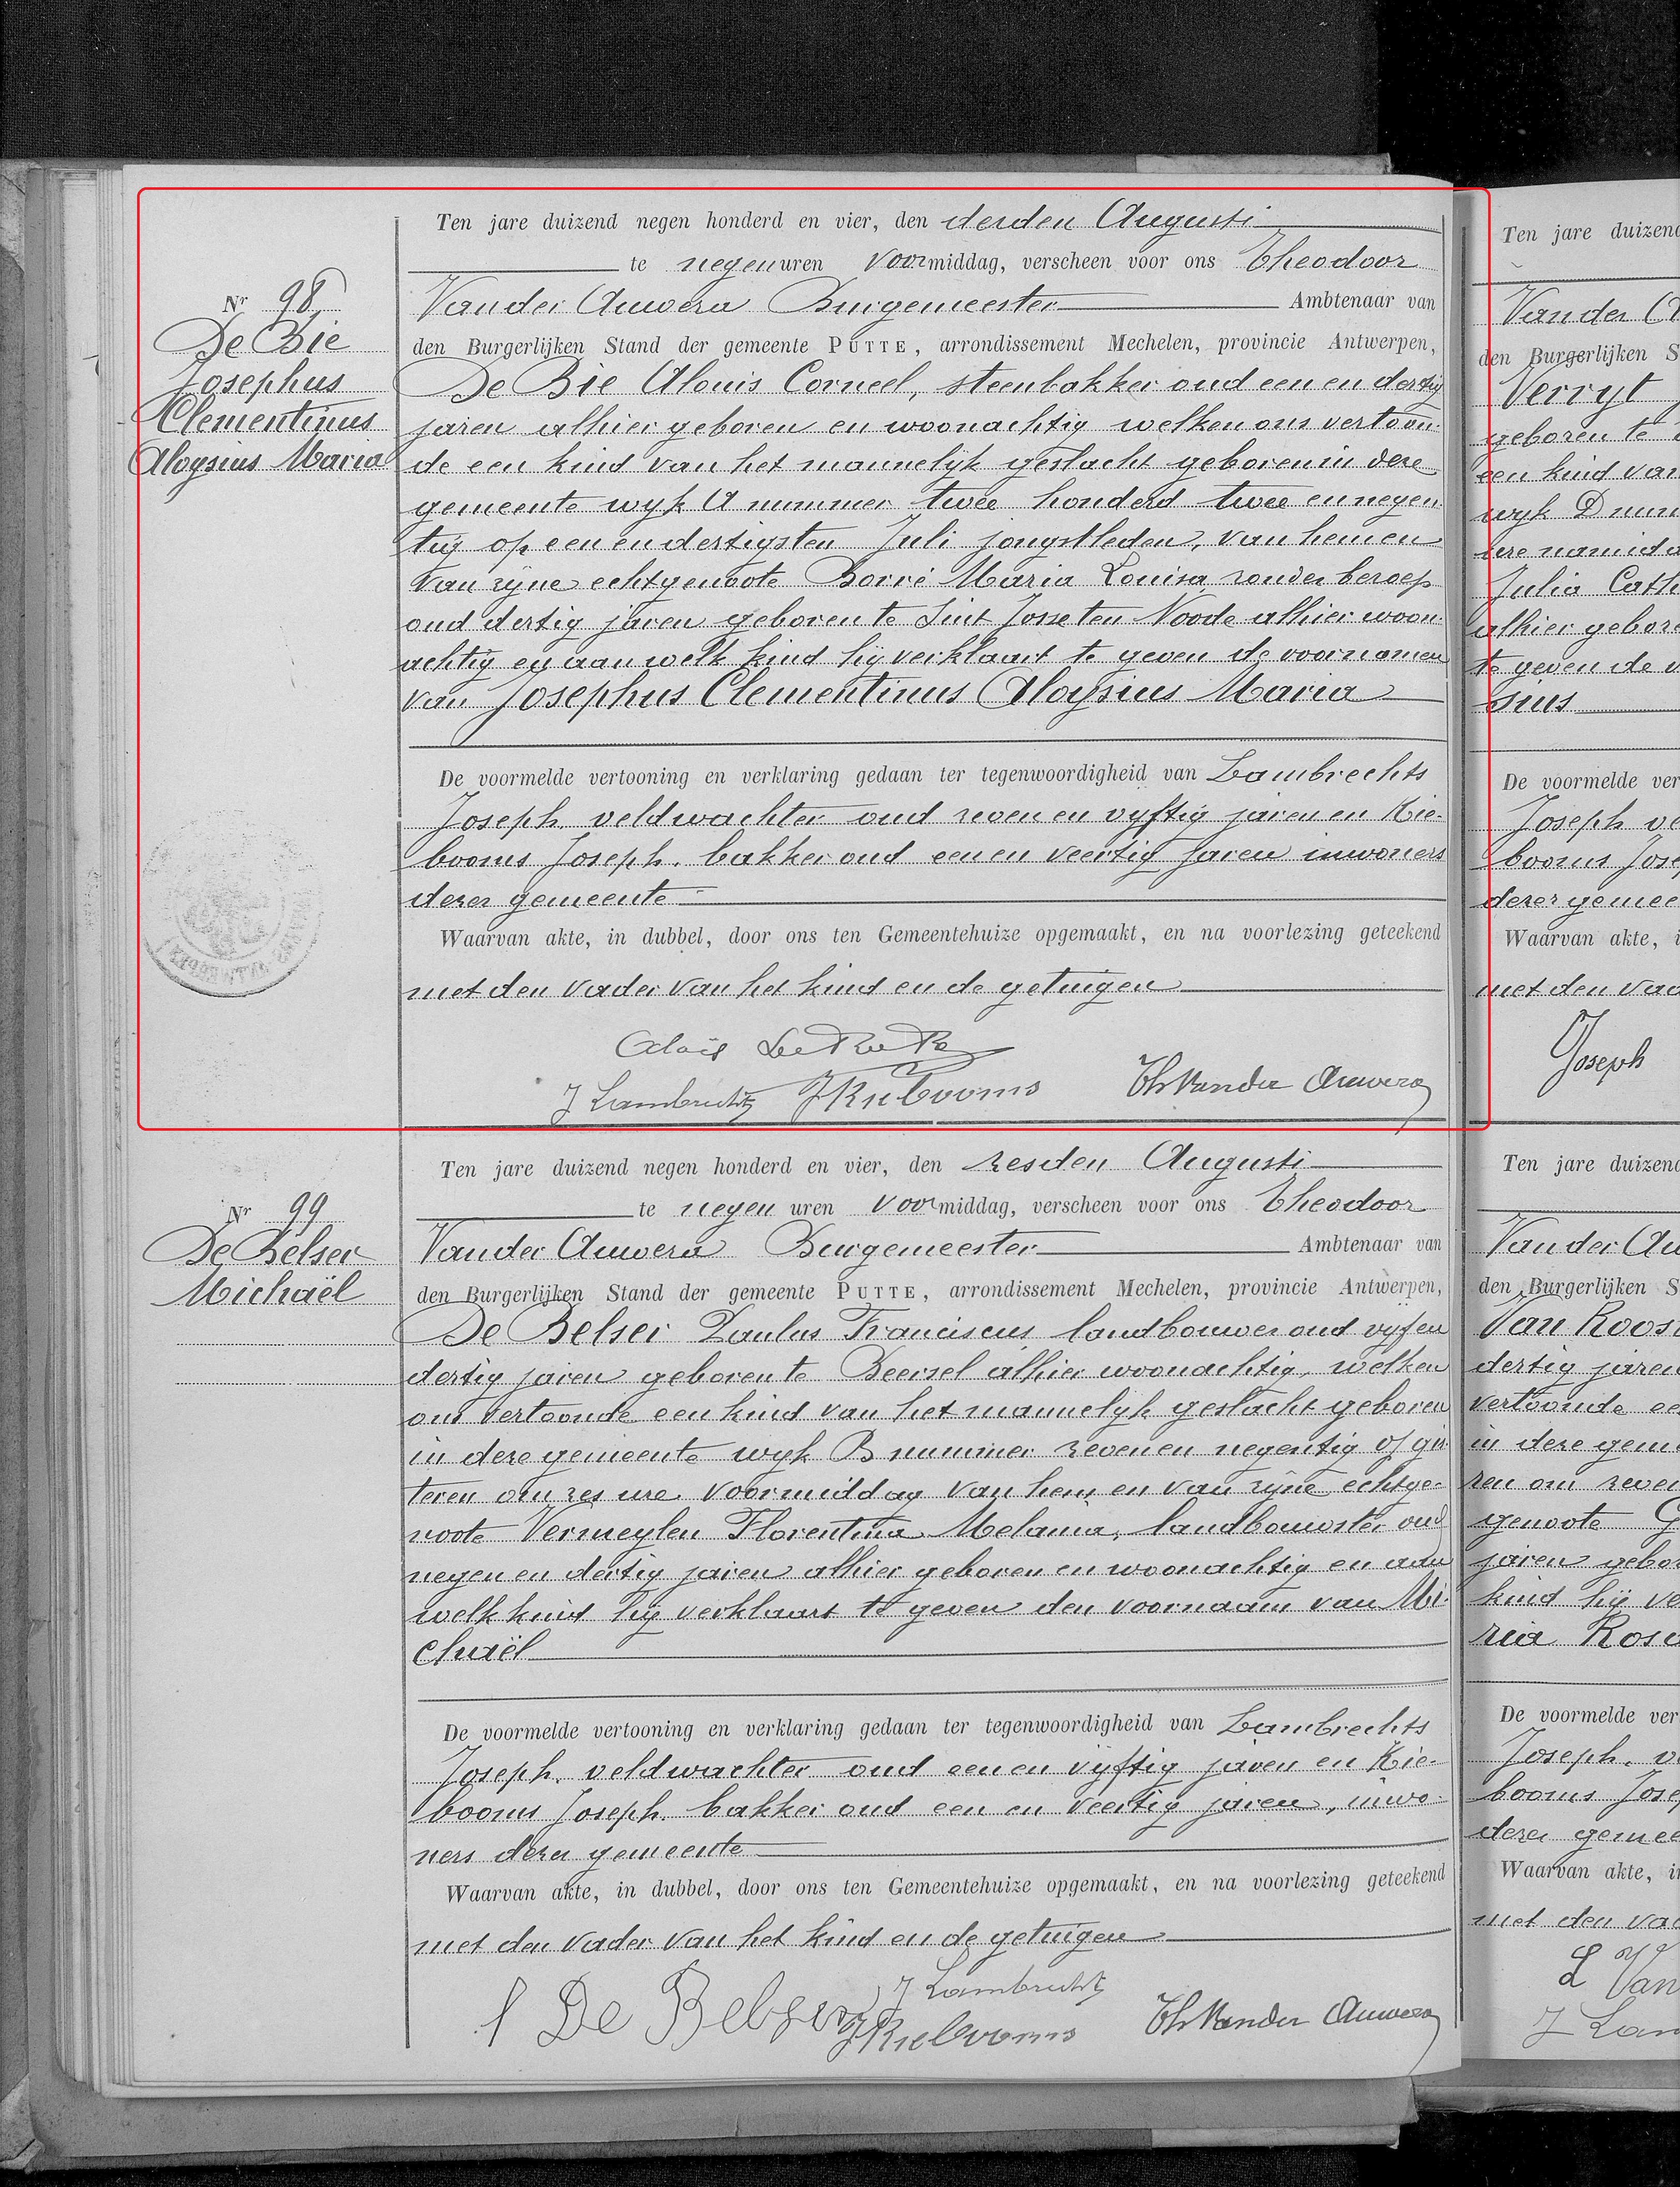 Ten jare duizend negen honderd en vier, den derden Augusti
te negen uren voormiddag, verscheen voor ons Theodoor
Van der Auwera Burgemeester Ambtenaar van
den Burgerlijken Stand der gemeente PUTTE, arrondissement Mechelen, provincie Antwerpen,
De Bie Alouis Corneel, steenbakker oud een en dertig
jaren alhier geboren en woonachtig welken ons vertoon-
de een kind van het mannelijk geslacht geboren in deze
gemeente wyk A nummer twee honderd twee en negen-
tig op een en dertigsten Juli jongstleden, van hem en
van zyne echtgenoote Borré Maria Louisa, zonder beroep
oud dertig jaren geboren te Sint Josse ten Noode alhier woon-
achtig en aan welk kind hy verklaart te geven de voornamen
van Josephus Clementinus Aloysius Maria
De voormelde vertooning en verklaring gedaan ter tegenwoordigheid van Lambrechts
Joseph. veldwachter oud zeven en vyftig jaren en Kie-
booms Joseph. bakker oud een en veertig jaren inwoners
dezer gemeente
Waarvan akte, in dubbel, door ons ten Gemeentehuize opgemaakt, en na voorlezing geteekend
met den vader van het kind en de getuigen
J Lambrechts JKiebooms Th Vander Auwera
Nr 98
De Bie
Josephus
Clementinus
Aloysius Maria
Ten jare duizend negen honderd en vier, den zesden Augusti
te negen uren voormiddag, verscheen voor ons Theodoor
Van der Auwera Burgemeester Ambtenaar van
den Burgerlijken Stand der gemeente PUTTE, arrondissement Mechelen, provincie Antwerpen,
De Belser Paulus Franciscus landbouwer oud vyf en
dertig jaren geboren te Beersel alhier woonachtig, welken
ons vertoonde een kind van het mannelyk geslacht geboren
in deze gemeente wyk B nummer zeven en negentig of gis-
teren om zes ure voormiddag van hem en van zyne echtge-
noote Vermeylen Florentina Melania, landbouwster oud
negen en dertig jaren alhier geboren en woonachtig en aan
welk kind hy verklaart te geven den voornaam van Mi-
chaël
De voormelde vertooning en verklaring gedaan ter tegenwoordigheid van Lambrechts
Joseph. veldwachter oud een en vyftig jaren en Kie-
booms Joseph. bakker oud een en veertig jaren, inwo-
ners dezer gemeente
Waarvan akte, in dubbel, door ons ten Gemeentehuize opgemaakt, en na voorlezing geteekend
met den vader van het kind en de getuigen
De Belser J Lambrechts
JKiebooms Th Vander Auwera
Nr 99
De Belser
Michaël
Ten jare duizend
Van der
den Burgerlijken S
Verryt
geboren te
een kind van
wyk D num
ure namidda
Julia Cath
alhier gebore
te geven de v
sius
De voormelde ver
Joseph ve
booms Jose
dezer gemee
Waarvan akte,
met den vad
Joseph
Ten jare duizend
Van der Au
den Burgerlijken S
Van Roos
dertig jaren
vertoonde ee
in deze geme
ren om zeven
genoote G
jaren gebor
kind hij ve
ria Rosa
De voormelde ver
Joseph. v
booms Jose
dezer gemee
Waarvan akte, i
met den vad
L Van
J Lam